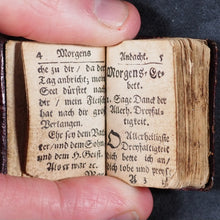 4 Morgens
che zu dir / da der
Tag anbricht; mein
Seel dürstet nach
dir / mein Fleisch
hat nach dir groß
Verlangen.
Ehr sey dem Vat-
ter / und dem Sohn
und dem H. Geist.
Als es war ec.
Andacht. 5
Morgens-Ge-
bett.
1. Sage Danck der
Allerh. Dreyfal-
tigkeit.
O Allerheiligste
Dreyfaltigkeit
dich bette ich an/
dich lobe und preyß
A 3